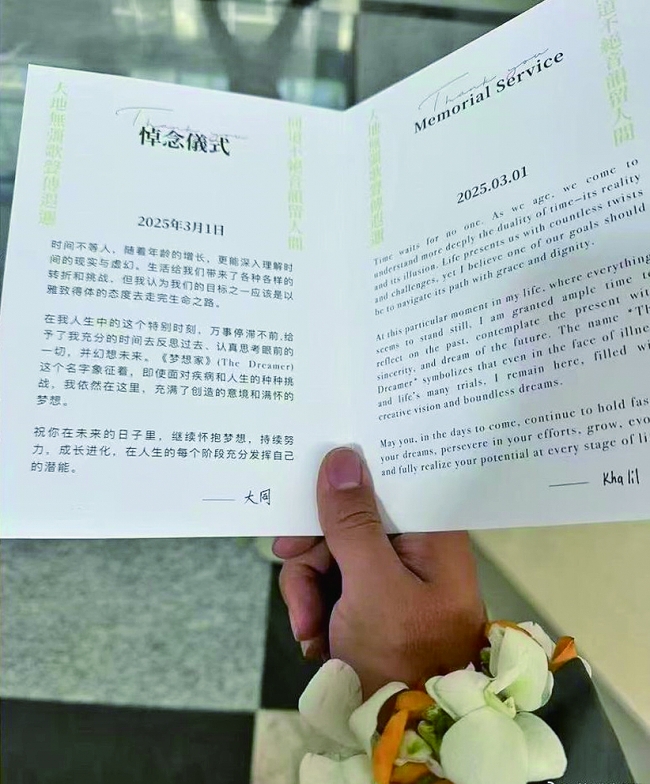 Thank you
悼念儀式
大地無疆歌聲傳遐邇
同道不絕音韻留人間
2025年3月1日
时间不等人，随着年龄的增长，更能深入理解时
间的现实与虚幻。生活给我们带来了各种各样的
转折和挑战，但我认为我们的目标之一应该是以
雅致得体的态度去走完生命之路。
在我人生中的这个特别时刻，万事停滞不前,给
予了我充分的时间去反思过去、认真思考眼前的
一切，并幻想未来。《梦想家》(The Dreamer)
这个名字象征着，即使面对疾病和人生的种种挑
战，我依然在这里，充满了创造的意境和满怀的
梦想。
祝你在未来的日子里，继续怀抱梦想，持续努
力，成长进化，在人生的每个阶段充分发挥自己
的潜能。
—— 大同
Thank you
Memorial Service
大地無疆歌聲傳遐邇
道不絕音韻留人間
2025.03.01
Time waits for no one. As we age, we come to
understand more deeply the duality of time—its reality
and its illusion. Life presents us with countless twists
and challenges, yet I believe one of our goals should
be to navigate its path with grace and dignity.
At this particular moment in my life, where everything
seems to stand still, I am granted ample time to
reflect on the past, contemplate the present wit
sincerity, and dream of the future. The name "Th
Dreamer" symbolizes that even in the face of illne
and life's many trials, I remain here, filled wi
creative vision and boundless dreams.
May you, in the days to come, continue to hold fas
your dreams, persevere in your efforts, grow, evo
and fully realize your potential at every stage of li
—— Khalil